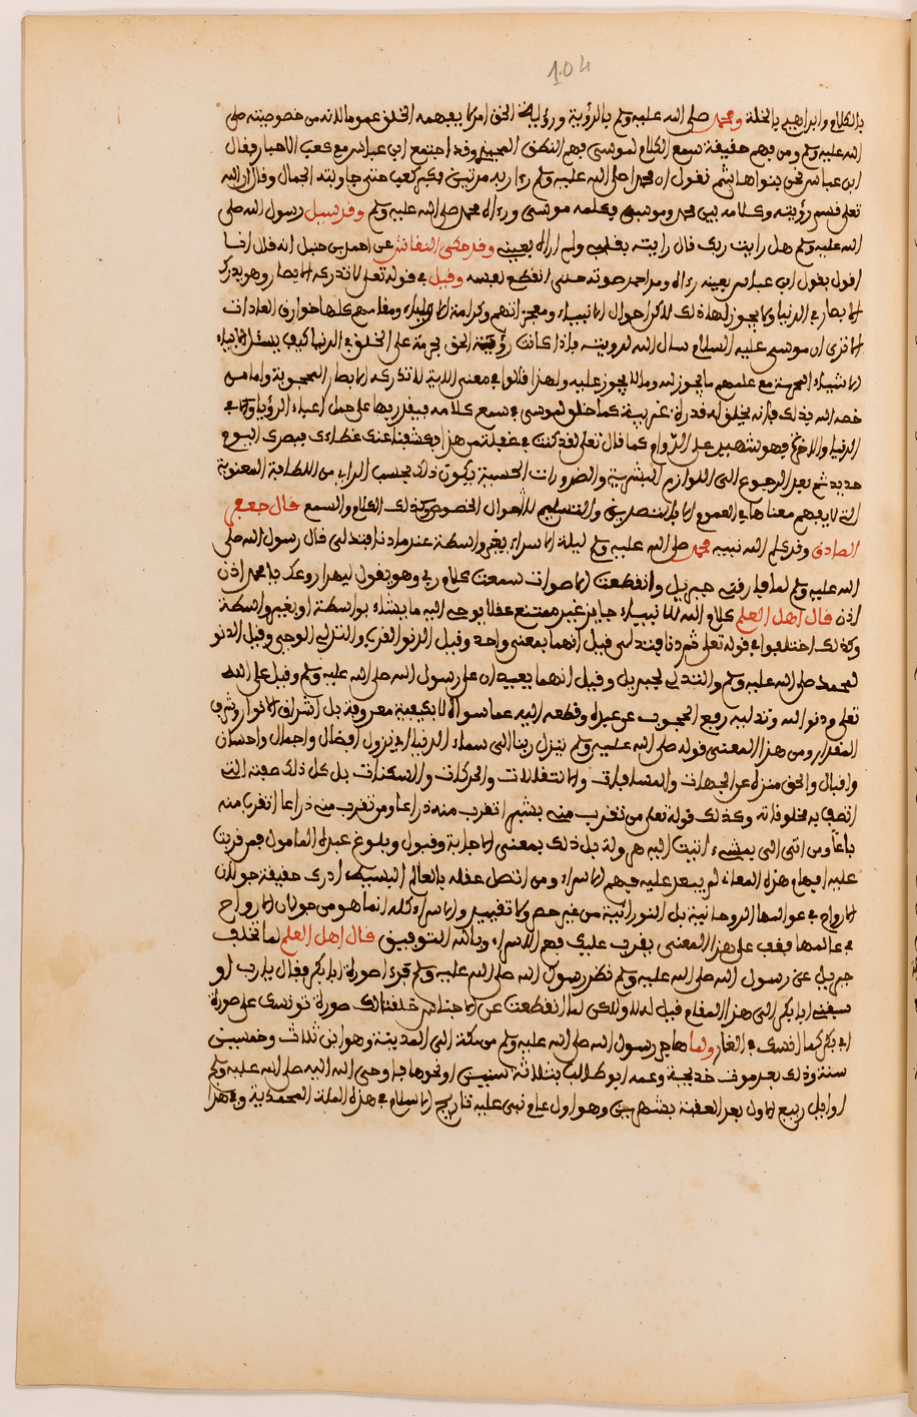 104
بالكلام وابراهيم بالخلة ومحمد صلى الله عليه وسلم بالرؤية ورؤية الحق امر لا يفهمه الخلق عموما لانه من خصوصيته صلى
الله عليه وسلم ومن فهم حقيقة سمع الكلام لموسى فهم النطق العجيب وقد اجتمع ابن عباس مع كعب الاحبار فقال
ابن عباس نحن بنوا هاشم نقول ان محمدا صلى الله عليه وسلم رءا ربه مرتين فكبر كعب حتى جاوبته الجبال وقال ان الله
تعلى قسم رؤيته وكلامه بين محمد وموسى فكلمه موسى ورءاه محمد صلى الله عليه وسلم وقد سيل رسول الله صلى
الله عليه وسلم هل رايت ربك قال رايته بقلبي ولم اراه بعيني وقد حكى النقاش عن احمد بن حنبل انه قال انا
اقول بقول ابن عباس بعينه رءاه ومد احمد صوته حتى انقطع نفسه وقيل في قوله تعلى لا تدركه الابصار وهو يدرك
الابصار في الدنيا ولا يجوز لهذه لكن احوال الانبياء ومعجزاتهم وكرامة الاولياء ومقامهم كلها خوارق العادات
الا ترى ان موسى عليه السلام سال الله لرويته فاذا كانت رؤية الحق محرمة على الخلق في الدنيا كيف يسئل الانبياء
الاشياء المحرمة مع علمهم ما يجوز لله وما لا يجوز عليه ولهذا قالوا في معنى الاية لا تدركه الابصار المحجوبة واما من
خصه الله بذلك فانه يخلق له قدرة غريبة كما خلق لموسى في سمع كلامه فيقدر بها على حمل اعباء الرؤيا
الدنيا والاخرة فهو شهيد على الدوام كما قال تعلى لقد كنت في غفلة من هذا فكشفنا عنك غطاءك فبصرك اليوم
حديد ثم بعد الرجوع الى اللوازم البشرية والضرورات الحسية يكون ذلك بحسب الراي من اللطافة المعنوية
التي لا يفهم معناها في العموم الا بالتصديق والتسليم للاحوال الخصوص وكذلك الكلام والسمع قال جعفر
الصادق وقد كلم الله نبيه محمد صلى الله عليه وسلم ليلة الاسراء بغير واسطة عند ما دنا فتدلى قال رسول الله صلى
الله عليه وسلم لما فارقني جبريل وانقطعت الاصوات سمعت كلام ربي وهو يقول ليهدا روعك يا محمد ادن
ادن قال اهل العلم كلام الله للانبياء جايز غير ممتنع عقلا يوحي اليه ما يشاء بواسطة او بغير واسطة
وكذلك اختلفوا في قوله تعلى ثم دنا فتدلى قيل انهما بمعنى واحد وقيل الدنو القرب والتدلي الوحي وقيل الدنو
لمحمد صلى الله عليه وسلم والتدلي لجبريل وقيل انهما يعيدان على رسول الله صلى الله عليه وسلم وقيل على الله
تعلى ودنو الله وتدليه رفع الحجوب عن عبده وقطعه اليه عما سواه لا بكيفية معروفة بل اشراق الانوار وشرف
المقدار ومن هذا المعنى قوله صلى الله عليه وسلم ينزل ربنا الى سماء الدنيا اي نزول افضال واجمال واحسان
واقبال والحق منزه عن الجهات والمسافات والانتقلات والحركات والسكنات بل كل ذلك صفته التي
اتصف به مخلوقاته وكذلك قوله تعلى من تقرب مني بشبر اتقرب منه ذراعا ومن تقرب مني ذراعا اتقرب منه
باعا ومن اتى الي يمشي اتيت اليه هرولة بل ذلك بمعنى الاجابة وقبول وبلوغ عبده المامول فمن قربت
عليه افهام هذه المعاني لم يبعد عليه فهم الاسراء ومن اتصل عقله بالعالم البسيط ادرك حقيقة جولان
الارواح في عوالمها الروحانية بل النورانية من غير حصر ولا تقييد والاسراء كله انما هو من جولان الارواح
في عالمها فقف على هذا المعنى يقرب عليك فهم الاسراء وبالله التوفيق قال اهل العلم لما تخلف
جبريل عن رسول الله صلى الله عليه وسلم نظر رسول الله صلى الله عليه وسلم فرءا صورة ابا بكر فقال يا رب او
سبقني ابا بكر الى هذا المقام فيل له لا ولكن لما انقطعت عن الاجناس خلقنا لك صورة تونسك على صورة
ابي بكر كما انسك في الغار ولما هاجر رسول الله صلى الله عليه وسلم من مكة الى المدينة وهو ابن ثلاث وخمسين
سنة وذلك بعد موت خديجة وعمه ابو طالب بثلاثة سنين او نحوها فاوحى الله اليه صلى الله عليه وسلم
اوايل ربيع الاول بعد العقبة بشهرين وهو اول عام نبني عليه تاريخ الاسلام في هذه الملة المحمدية وفي هذا